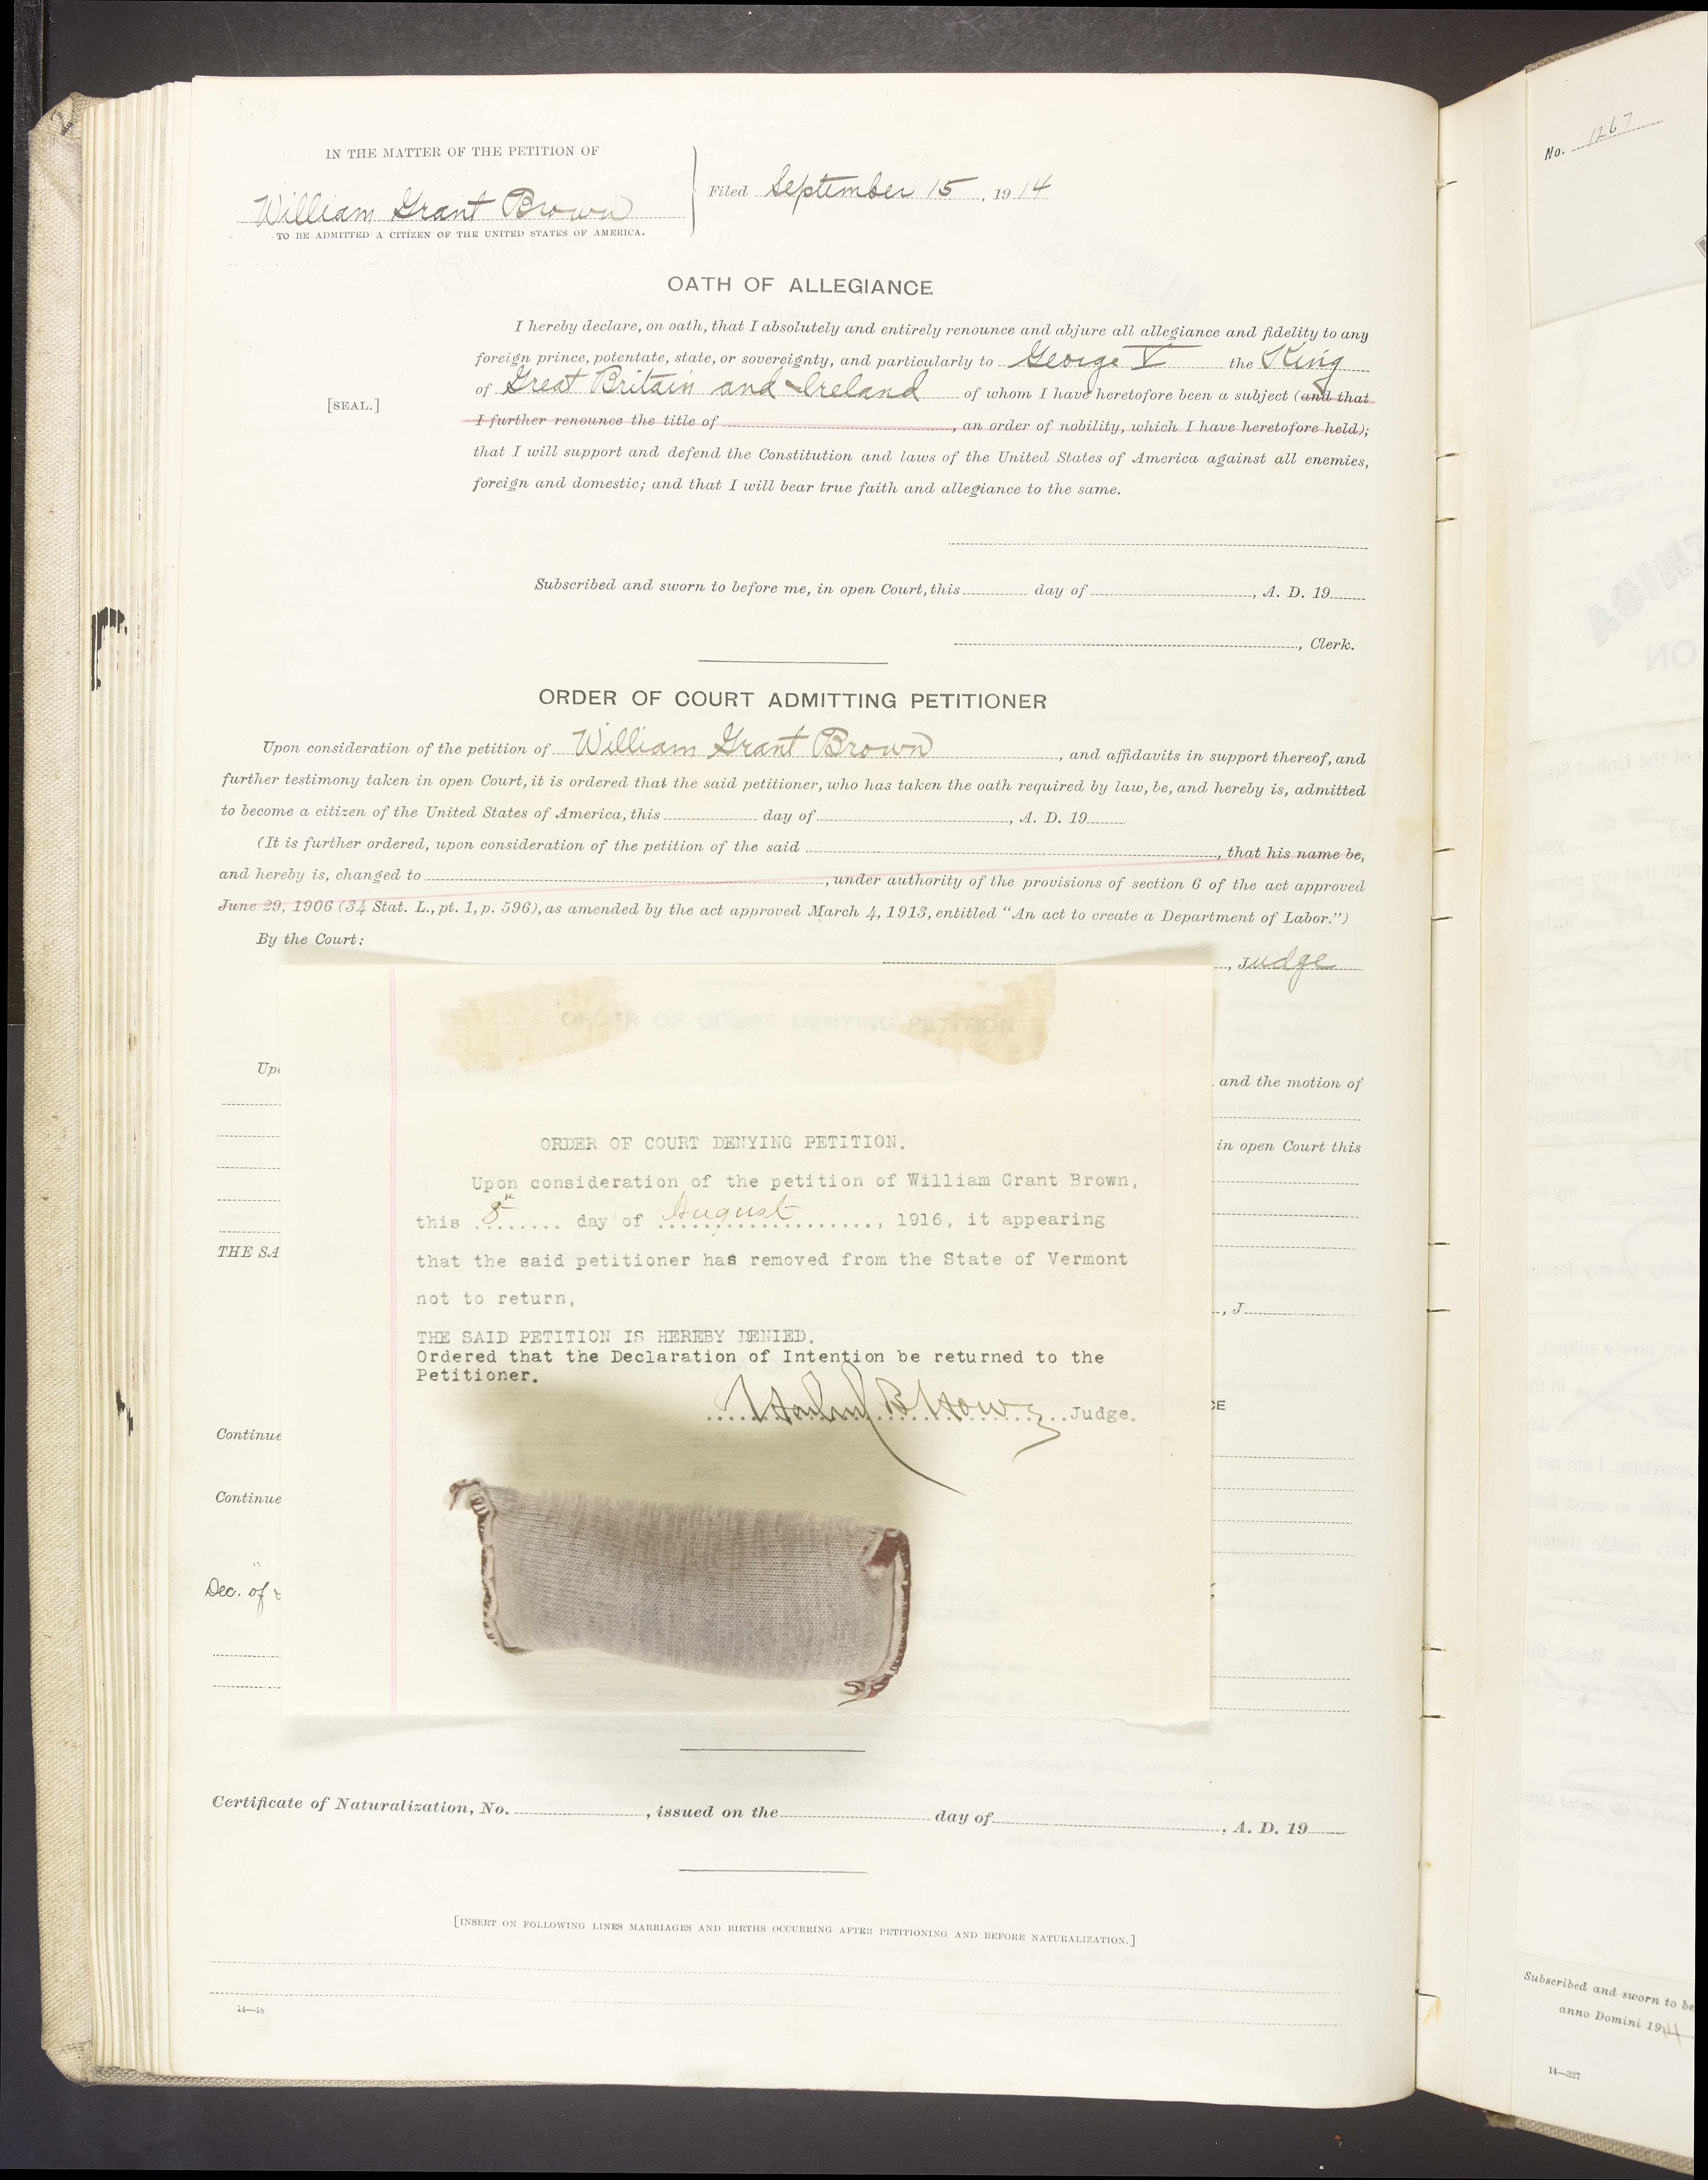 IN THE MATTER OF THE PETITION OF
William Grant Brown
TO BE ADMITTED A CITIZEN OF THE UNITED STATES OF AMERICA.
Filed September 15, 1914
OATH OF ALLEGIANCE
I hereby declare, on oath, that I absolutely and entirely renounce and abjure all allegiance and fidelity to any
foreign prince, potentate, state, or sovereignty, and particularly to George V the King
of Great Britain and Ireland of whom I have heretofore been a subject (and that
[SEAL.]
I further renounce the title of , an order of nobility, which I have heretofore held);
that I will support and defend the Constitution and laws of the United States of America against all enemies,
foreign and domestic; and that I will bear true faith and allegiance to the same.
Subscribed and sworn to before me, in open Court, this day of , A. D. 19
, Clerk.
ORDER OF COURT ADMITTING PETITIONER
Upon consideration of the petition of William Grant Brown , and affidavits in support thereof, and
further testimony taken in open Court, it is ordered that the said petitioner, who has taken the oath required by law, be, and hereby is, admitted
to become a citizen of the United States of America, this day of , A. D. 19
(It is further ordered, upon consideration of the petition of the said , that his name be,
and hereby is, changed to , under authority of the provisions of section 6 of the act approved
June 29, 1906 (34 Stat. L., pt. 1, p. 596), as amended by the act approved March 4, 1913, entitled "An act to create a Department of Labor.")
By the Court:
, Judge
ORDER OF COURT DENYING PETITION
and the motion of
in open Court this
ORDER OF COURT DENYING PETITION.
Upon consideration of the petition of William Grant Brown,
this 8" day of August, 1916, it appearing
that the said petitioner has removed from the State of Vermont
not to return,
THE SAID PETITION IS HEREBY DENIED.
Ordered that the Declaration of Intention be returned to the
Petitioner.
Judge.
THE SA
, J
Continue
Continue
Dec. of
Certificate of Naturalization, No. , issued on the day of , A. D. 19
[INSERT ON FOLLOWING LINES MARRIAGES AND BIRTHS OCCURRING AFTER PETITIONING AND BEFORE NATURALIZATION.]
14—48
No. 1267
Subscribed and sworn to be
anno Domini 1914
14—327